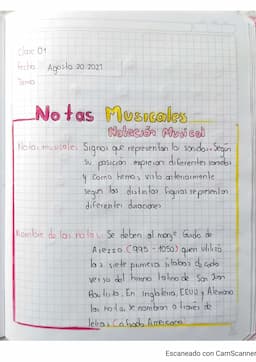 Clase 01
fecha Agosto 20 2021
Tema
Notas Musicales
Notación Musical
Notas musicales Signos que representan los sonidos. Según
su posición expresan diferentes sonidos
y como hemos visto anteriormente
según las distintas figuras representan
diferentes duraciones
Nombre de las notas: Se deben al monje Guido de
Arezzo (995 - 1050) quen utilizó
las siete primeras sílabas de cada
verso del himno latino de San Juan
Bautista. En Inglaterra, EEUU y Alemania
las notas se nombran a través de
letras Cifrado Americano
Escaneado con CamScanner